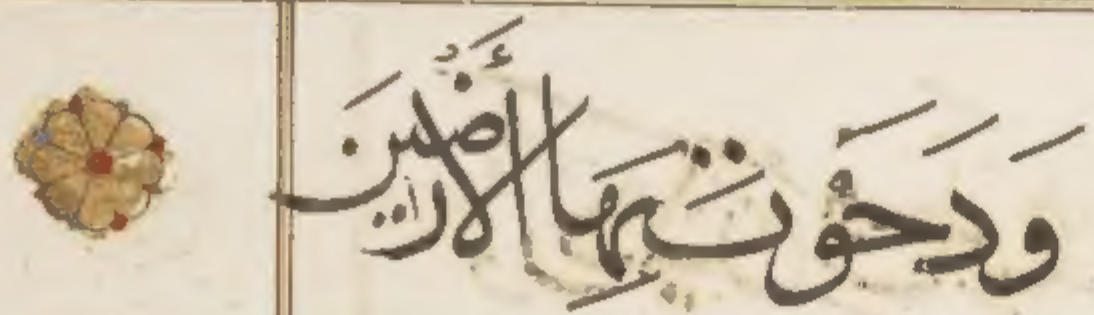 وَدَحَوْتَ بِهَا الْأَرَضِينَ